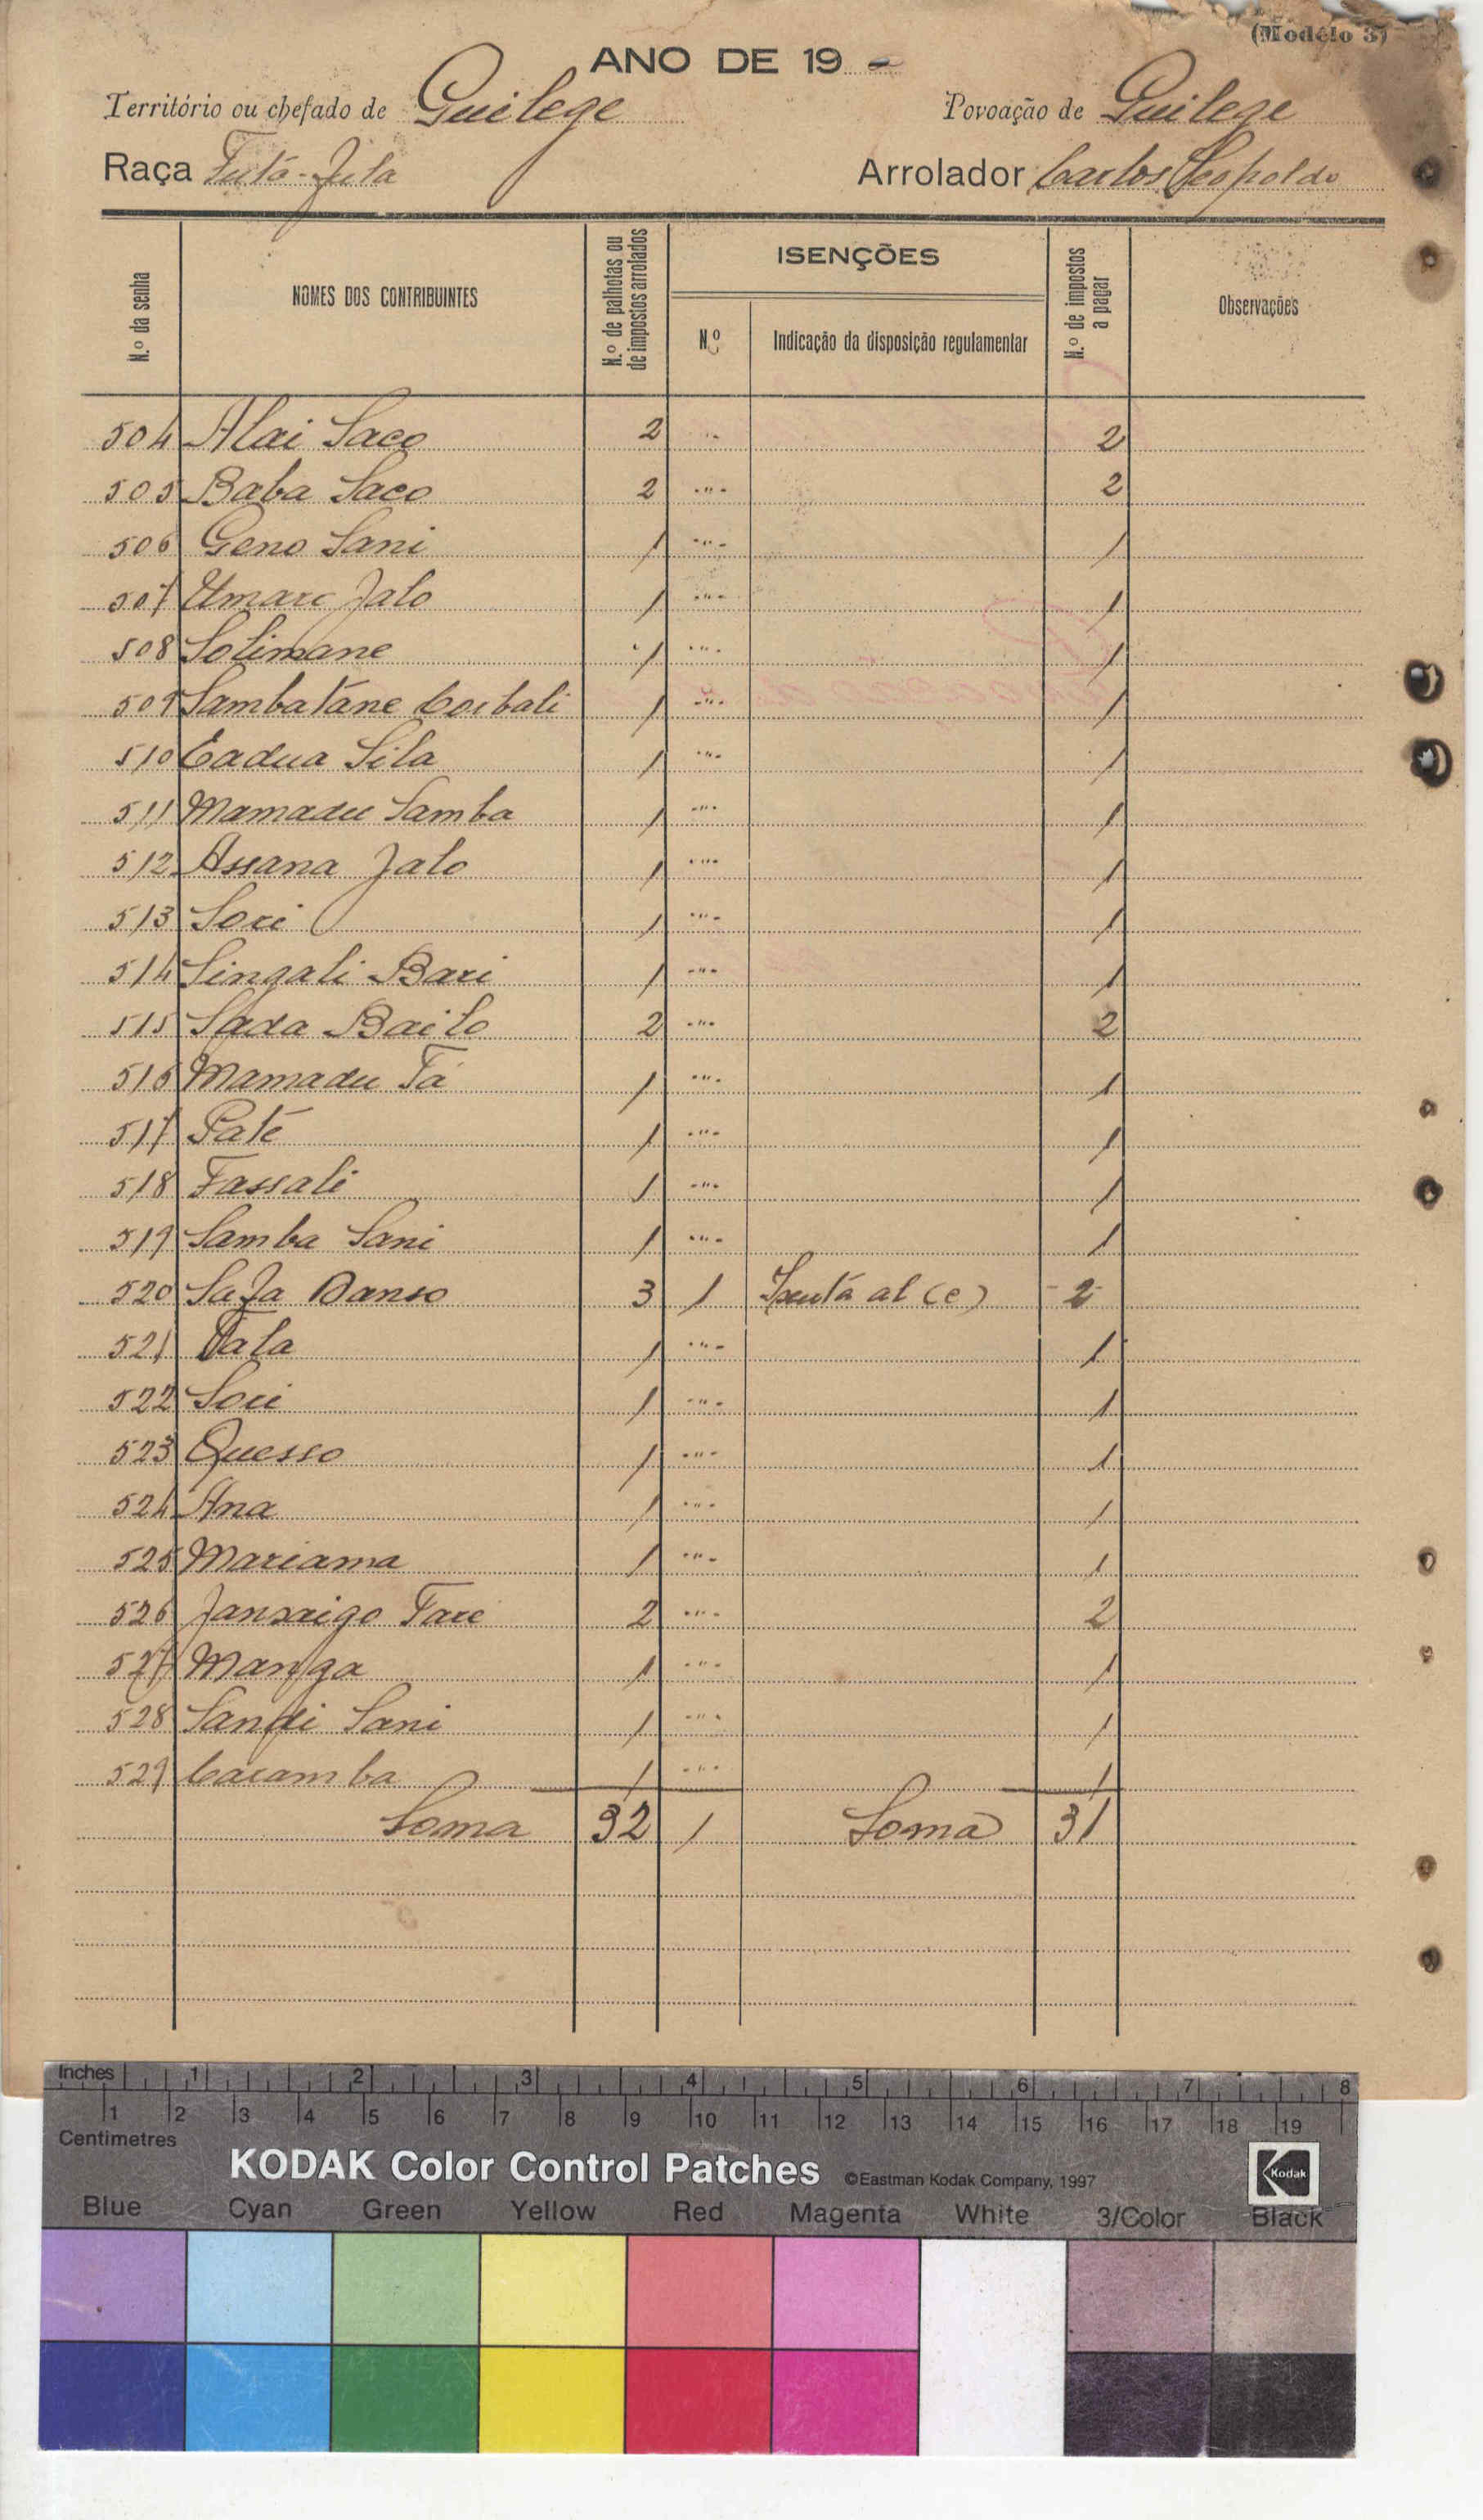 (Modêlo 3)
ANO DE 19 -
Território ou chefado de Guilege Povoação de Guilege
Raça Futá-Jila Arrolador Carlos Leopoldo
N.º da senha NOMES DOS CONTRIBUINTES N.º de palhotas ou de impostos arrolados ISENÇÕES N.º de impostos a pagar Observações
N.º Indicação da disposição regulamentar
504 Alai Saco 2 2
505 Baba Saco 2 -"- 2
506 Geno Sani 1 -"- 1
507 Umaro Jalo 1 -"- 1
508 Solimane 1 -"- 1
509 Sambatáne Coibali 1 -"- 1
510 Cadua Sila 1 -"- 1
511 Mamadu Samba 1 -"- 1
512 Assana Jalo 1 -"- 1
513 Sori 1 -"- 1
514 Singali Bari 1 -"- 1
515 Sada Bailo 2 -"- 2
516 Mamadu Tá 1 -"- 1
517 Paté 1 -"- 1
518 Fassali 1 -"- 1
519 Samba Sani 1 -"- 1
520 Saja Danso 3 1 Isentá al (e) -2-
521 Tala 1 -"- 1
522 Sori 1 -"- 1
523 Quesso 1 -"- 1
524 Ana 1 -"- 1
525 Mariama 1 -"- 1
526 Tare 2 -"- 2
527 Manga 1 -"- 1
528 Sandi Sani 1 -"- 1
529 Caramba 1 -"- 1
Soma 32 1 Soma 31
Inches 1 2 3 4 5 6 7 8
1 2 3 4 5 6 7 8 9 10 11 12 13 14 15 16 17 18 19
Centimetres
KODAK Color Control Patches ©Eastman Kodak Company, 1997 Kodak
Blue Cyan Green Yellow Red Magenta White 3/Color Black